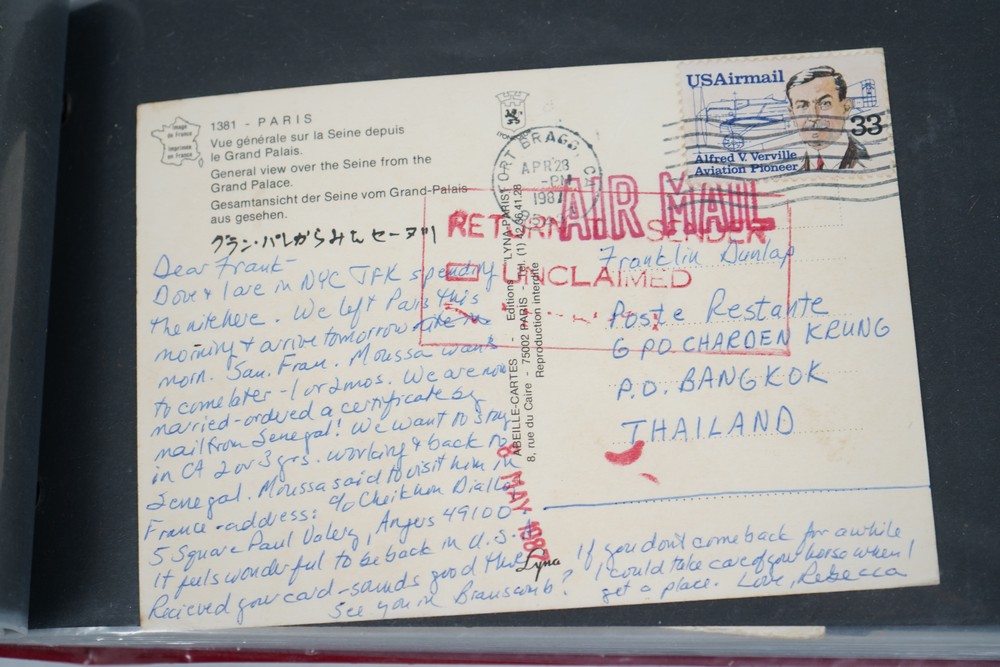 Image de France
Imprimée en France
1381 - PARIS
Vue générale sur la Seine depuis
le Grand Palais.
General view over the Seine from the
Grand Palace.
Gesamtansicht der Seine vom Grand-Palais
aus gesehen.
グラン・パレからみたセーヌ川
Dear Frank-
Dove & I are in NYC JFK spending
the nite here. We left Paris this
morning & arrive tomorrow
morn. San. Fran. Moussa wants
to come later - 1 or 2 mos. We are now
married-ordered a certificate by
mail from Senegal! We want to stay
in CA 2 or 3 yrs. working & back to
Senegal. Moussa said to visit him in
France-address: c/o Cheikhou Diallo
5 Square Paul Valery, Angers 49100.
It feels wonderful to be back in U.S.A
Recieved your card-sounds good there
See you in Branscomb?
If you dont come back for awhile
I could take care of your horse when I
get a place. Love, Rebecca
ABEILLE-CARTES - Editions "LYNA-PARIS"
8, rue du Caire - 75002 PARIS - Tél. (1) 42.36.41.28
Reproduction interdite
Lyna
8 MAY 1987
FORT BRAGG, CA
APR 28
PM
1987
USAirmail
33
Alfred V. Verville
Aviation Pioneer
AIR MAIL
RETURN SENDER
UNCLAIMED
Franklin Dunlap
Poste Restante
GPO CHARDEN KRUNG
P.O. BANGKOK
THAILAND